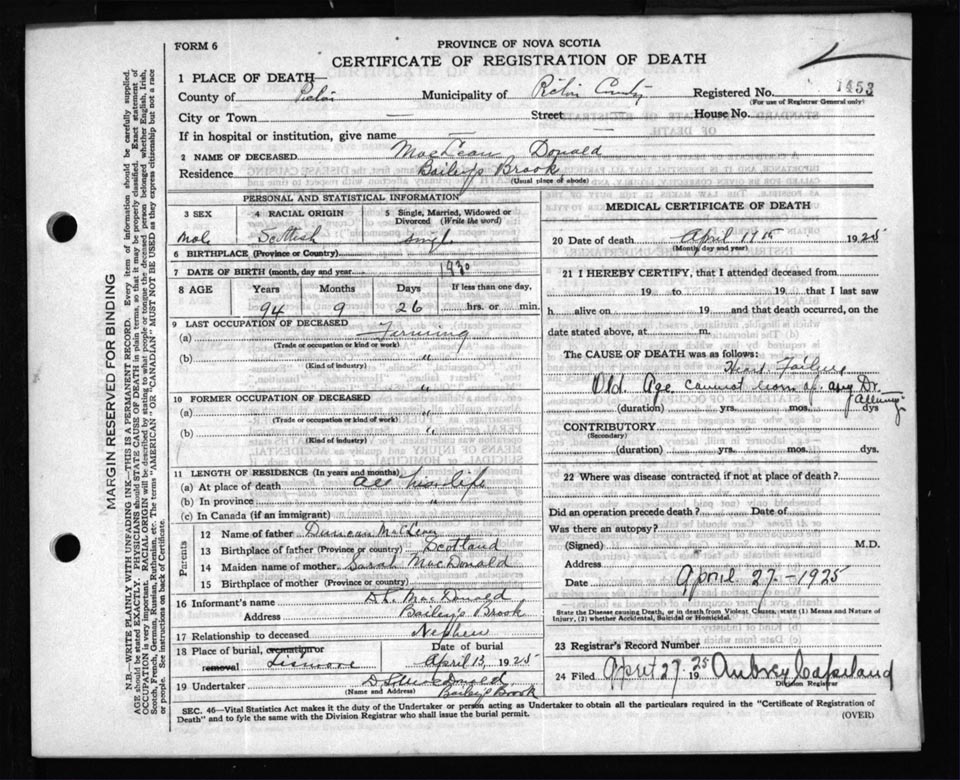 FORM 6
PROVINCE OF NOVA SCOTIA
CERTIFICATE OF REGISTRATION OF DEATH
1 PLACE OF DEATH—
County of Pictou Municipality of Pictou County Registered No. 1453
(For use of Registrar General only)
City or Town — Street — House No.
If in hospital or institution, give name —
2 NAME OF DECEASED MacLean Donald
Residence Baileys Brook
(Usual place of abode)
PERSONAL AND STATISTICAL INFORMATION
3 SEX 4 RACIAL ORIGIN 5 Single, Married, Widowed or Divorced (Write the word)
Male Scottish Single
6 BIRTHPLACE (Province or Country)
7 DATE OF BIRTH (month, day and year) 1930
8 AGE Years Months Days If less than one day,
94 9 26 hrs. or min.
9 LAST OCCUPATION OF DECEASED
(a) Farming
(Trade or occupation or kind of work)
(b) "
(Kind of industry)
"
10 FORMER OCCUPATION OF DECEASED
(a) "
(Trade or occupation or kind of work)
(b) "
(Kind of industry)
11 LENGTH OF RESIDENCE (In years and months)
(a) At place of death All his life
(b) In province "
(c) In Canada (if an immigrant)
Parents
12 Name of father Duncan MacLean
13 Birthplace of father (Province or country) Scotland
14 Maiden name of mother Sarah MacDonald
15 Birthplace of mother (Province or country)
16 Informant's name MacDonald
Address Baileys Brook
17 Relationship to deceased Nephew
18 Place of burial, cremation or removal Lismore
Date of burial April 13, 1925
19 Undertaker D MacDonald
(Name and Address) Baileys Brook
MEDICAL CERTIFICATE OF DEATH
20 Date of death April 1925
(Month, day and year)
21 I HEREBY CERTIFY, that I attended deceased from
19 to 19 that I last saw
h alive on 19 and that death occurred, on the
date stated above, at m.
The CAUSE OF DEATH was as follows:
Heart Failure
Old Age cannot any Dr.
(duration) yrs. mos. dys
CONTRIBUTORY
(Secondary)
(duration) yrs. mos. dys.
22 Where was disease contracted if not at place of death?
Did an operation precede death? Date of
Was there an autopsy?
(Signed) M.D.
Address
Date April 27-1925
State the Disease causing Death, or in death from Violent Clauses, state (1) Means and Nature of Injury, (2) whether Accidental, Suicidal or Homicidal.
23 Registrar's Record Number
24 Filed April 27 1925 Aubrey Copeland
Division Registrar
SEC. 46—Vital Statistics Act makes it the duty of the Undertaker or person acting as Undertaker to obtain all the particulars required in the "Certificate of Registration of
Death" and to fyle the same with the Division Registrar who shall issue the burial permit.
(OVER)
MARGIN RESERVED FOR BINDING
N.B.—WRITE PLAINLY WITH UNFADING INK—THIS IS A PERMANENT RECORD. Every item of information should be carefully supplied.
AGE should be stated EXACTLY. PHYSICIANS should STATE CAUSE OF DEATH in plain terms, so that it may be properly classified. Exact statement of
OCCUPATION is very important. RACIAL ORIGIN will be described by stating to what people or tongue the deceased person belonged whether English, Irish,
Scotch, French, German, Russian, Ruthenian, etc. The terms "AMERICAN" OR "CANADIAN" MUST NOT BE USED as they express citizenship but not a race
or people. See instructions on back of Certificate.